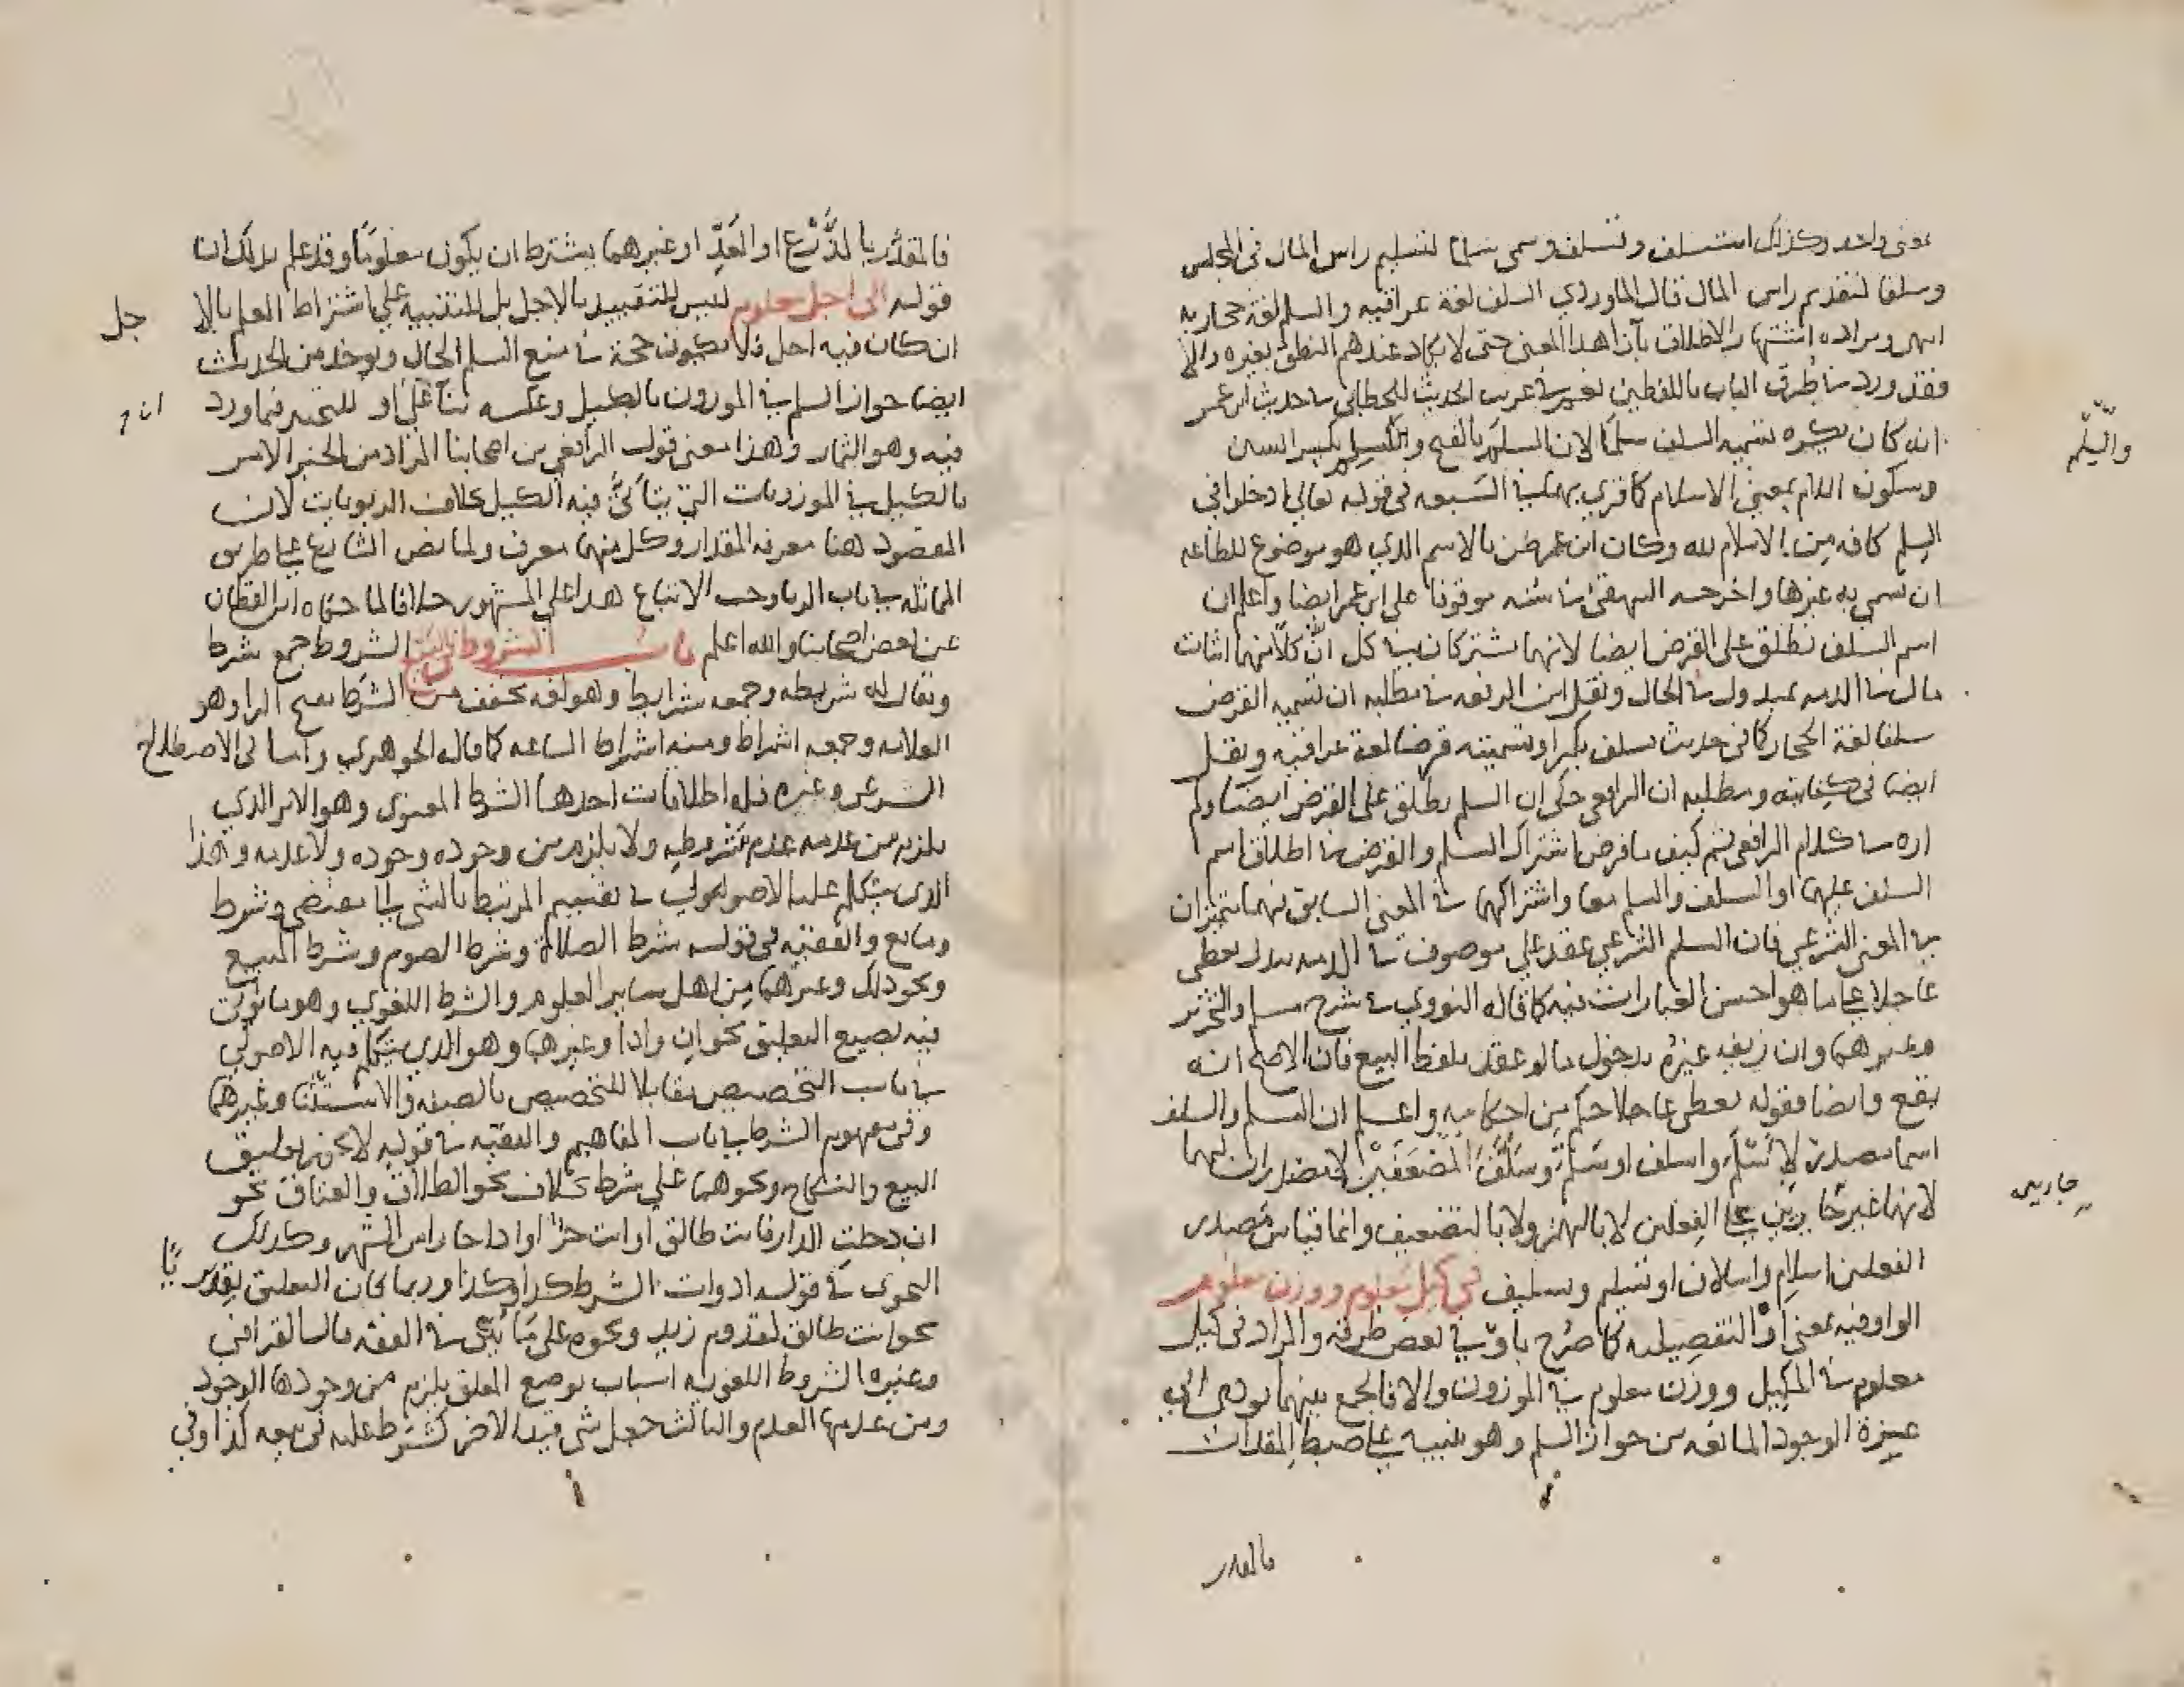 بمعنى واحد وكذلك استسلف وتسلف وسمى سلما لتسليم راس المال في المجلس
وسلفا لتقديم راس المال قال الماوردي السلف لغة عراقيه والسلم لغة حجازيه
انتهى ومراده اشتهار الاطلاق بازاء هذا المعنى حتى لا يكاد عندهم النطق بغيره والا
فقد ورد في طرق الباب باللفظين نعم في غريب الحديث للخطابي في حديث ابن عمر
انه كان يكره تسميه السلف سلما لان السلم بالفتح والسلم بكسر السين
والسلم
وسكون اللام بمعنى الاسلام كما قري بهما في السبعه في قوله تعالى ادخلوا في
السلم كافه من الاسلام لله وكان ابن عمر ضن بالاسم الذي هو موضوع للطاعه
ان تسمى به غيرها واخرجه البيهقي في سننه موقوفا على ابن عمر ايضا واعلم ان
اسم السلف تطلق على القرض ايضا لانهما يشتركان في كل ان كلا منهما اثبات
مال في الذمه بمبدول في الحال ونقل ابن الرفعه في مطلبه ان تسميه القرض
سلفا لغة الحجاز كما في حديث تسلف بكرا وتسميته قرضا لغة عراقيه ونقل
ايضا في كفايته ومطلبه ان الرافعي حكى ان السلم يطلق على القرض ايضا ولم
اره في كلام الرافعي ثم كيف ما فرض اشتراك السلم والقرض في اطلاق اسم
السلف عليهما او السلف والسلم معا واشتراكهما في المعنى السابق فهما متميزان
في المعنى الشرعي فان السلم الشرعي عقد على موصوف في الذمه ببدل يعطى
عاجلا على ما هو احسن العبارات فيه كما قاله النووي في شرح مسلم والتحرير
وغيرهما وان زيفه غيره بدخول ما لو عقد بلفظ البيع فان الاصح انه
يقع وايضا فقوله يعطى عاجلا حكم من احكامه واعلم ان السلم والسلف
اسما مصدر لاسلم واسلف او سلم وسلف المضعفين لا مصدران لهما
لانهما غير جاريين على الفعلين لا بالهمز ولا بالتضعيف وانما قياس مصدر
جاريين
الفعلين اسلام واسلاف او تسليم وتسليف في كيل معلوم ووزن معلوم
الواو فيه بمعنى او التفصيليه كما صرح باو في بعض طرقه والمراد في كيل
معلوم في المكيل ووزن معلوم في الموزون والا فالجمع بينهما يودي الى
عزة الوجود المانعه من جواز السلم وهو تنبيه على ضبط المقدرات
فالمقدر
فالمقدر بالذرع او العد او غيرهما يشترط ان يكون معلوما وقد علم بذلك ان
قوله الى اجل معلوم ليس للتقييد بالاجل بل للتنبيه على اشتراط العلم بالا
جل
ان كان فيه اجل فلا يكون حجة في منع السلم الحال ويوخذ من الحديث
ايضا جواز السلم في الموزون بالكيل وعكسه بنا على او للتخيير فما ورد
فيه وهو الثمار وهذا معنى قول الرافعي من اصحابنا المراد من الخبر الامر
بالكيل في الموزونات التي يتاتى فيه الكيل بخلاف الربويات لان
المقصود هنا معرفه المقدار وكل منهما معرف ولما نص الشارع على طريق
المماثله في باب الربا وجب الاتباع هذا على المشهور خلافا لما حكاه ابن القطان
عن بعض اصحابنا والله اعلم باب الشروط في البيع الشروط جمع شرط
ويقال له شريطه وجمعه شرايط وهو لغه مخفف من الشرط بفتح الرا وهو
العلامه وجمعه اشراط ومنه اشراط الساعه كما قاله الجوهري واما في الاصطلاح
الشرعي وغيره فله اطلاقات احدها الشرط المعنوي وهو الامر الذي
يلزم من عدمه عدم مشروطه ولا يلزم من وجوده وجوده ولا عدمه وهذا
الذي يتكلم عليه الاصوليون في تقسيم المرتبط بالشي الى مقتضى وشرط
ومانع والفقيه في قوله شرط الصلاة وشرط الصوم وشرط المبيع
ونحو ذلك وغيرهما من اهل ساير العلوم والشرط اللغوي وهو ما يوتى
فيه بصيغ التعليق نحو ان واذا وغيرهما وهو الذي يتكلم فيه الاصولي
في باب التخصيص مقابلا للتخصيص بالصفه والاستثنا وغيرهما
وفي مفهوم الشرط في باب المفاهيم والفقيه في قوله لا يجوز تعليق
البيع والنكاح ونحوهما على شرط بخلاف نحو الطلاق والعتاق نحو
ان دخلت الدار فانت طالق او انت حر او اذا جا راس الشهر وكذلك
النحوي في قوله ادوات الشرط كذا وكذا وربما كان التعليق تقديريا
نحو انت طالق لقدوم زيد ونحوه على ما يتبين في الفقه قال القرافي
وغيره الشروط اللغويه اسباب بوضع المعلق يلزم من وجودها الوجود
ومن عدمها العدم والثالث جعل شي قيدا لاخر كشرط عليه في بيعه كذا وفي